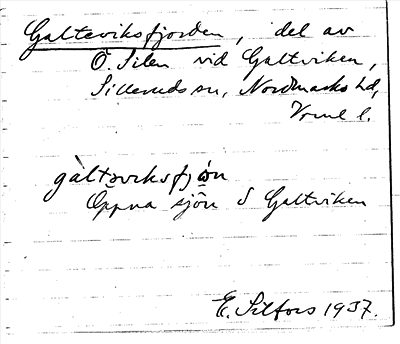 Galteviksfjorden, del av
Ö. Silen vid Galtviken,
Sillerud sn, Nordmarks hd,
Vrml l.
gàltəviksfjọn
Öppna sjön S Galtviken
E. Silfors 1937.